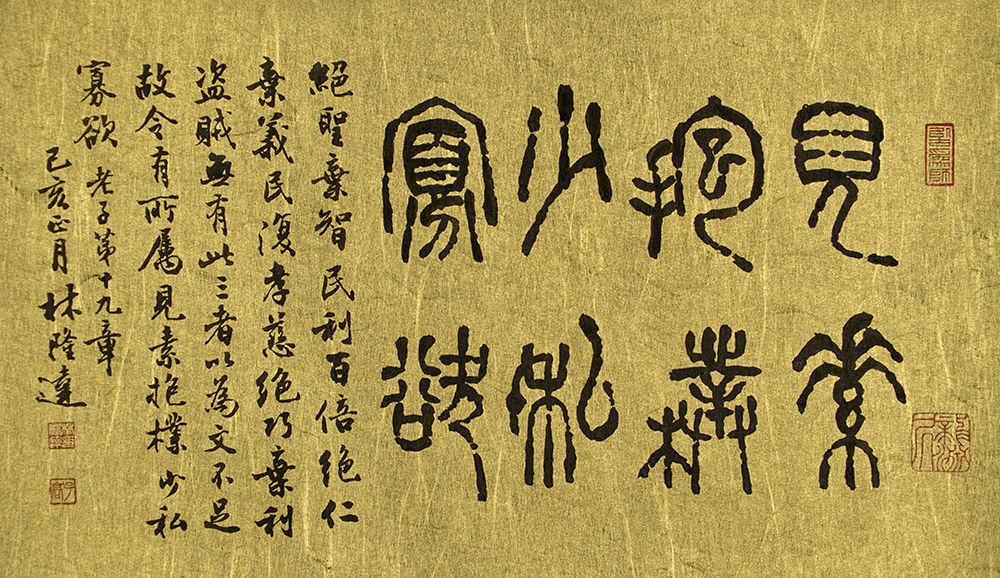 見素
抱樸
少私
寡欲
絕聖棄智民利百倍絕仁
棄義民復孝慈絕巧棄利
盜賊無有此三者以為文不足
故令有所屬見素抱樸少私
寡欲 老子第十九章
己亥正月林隆達